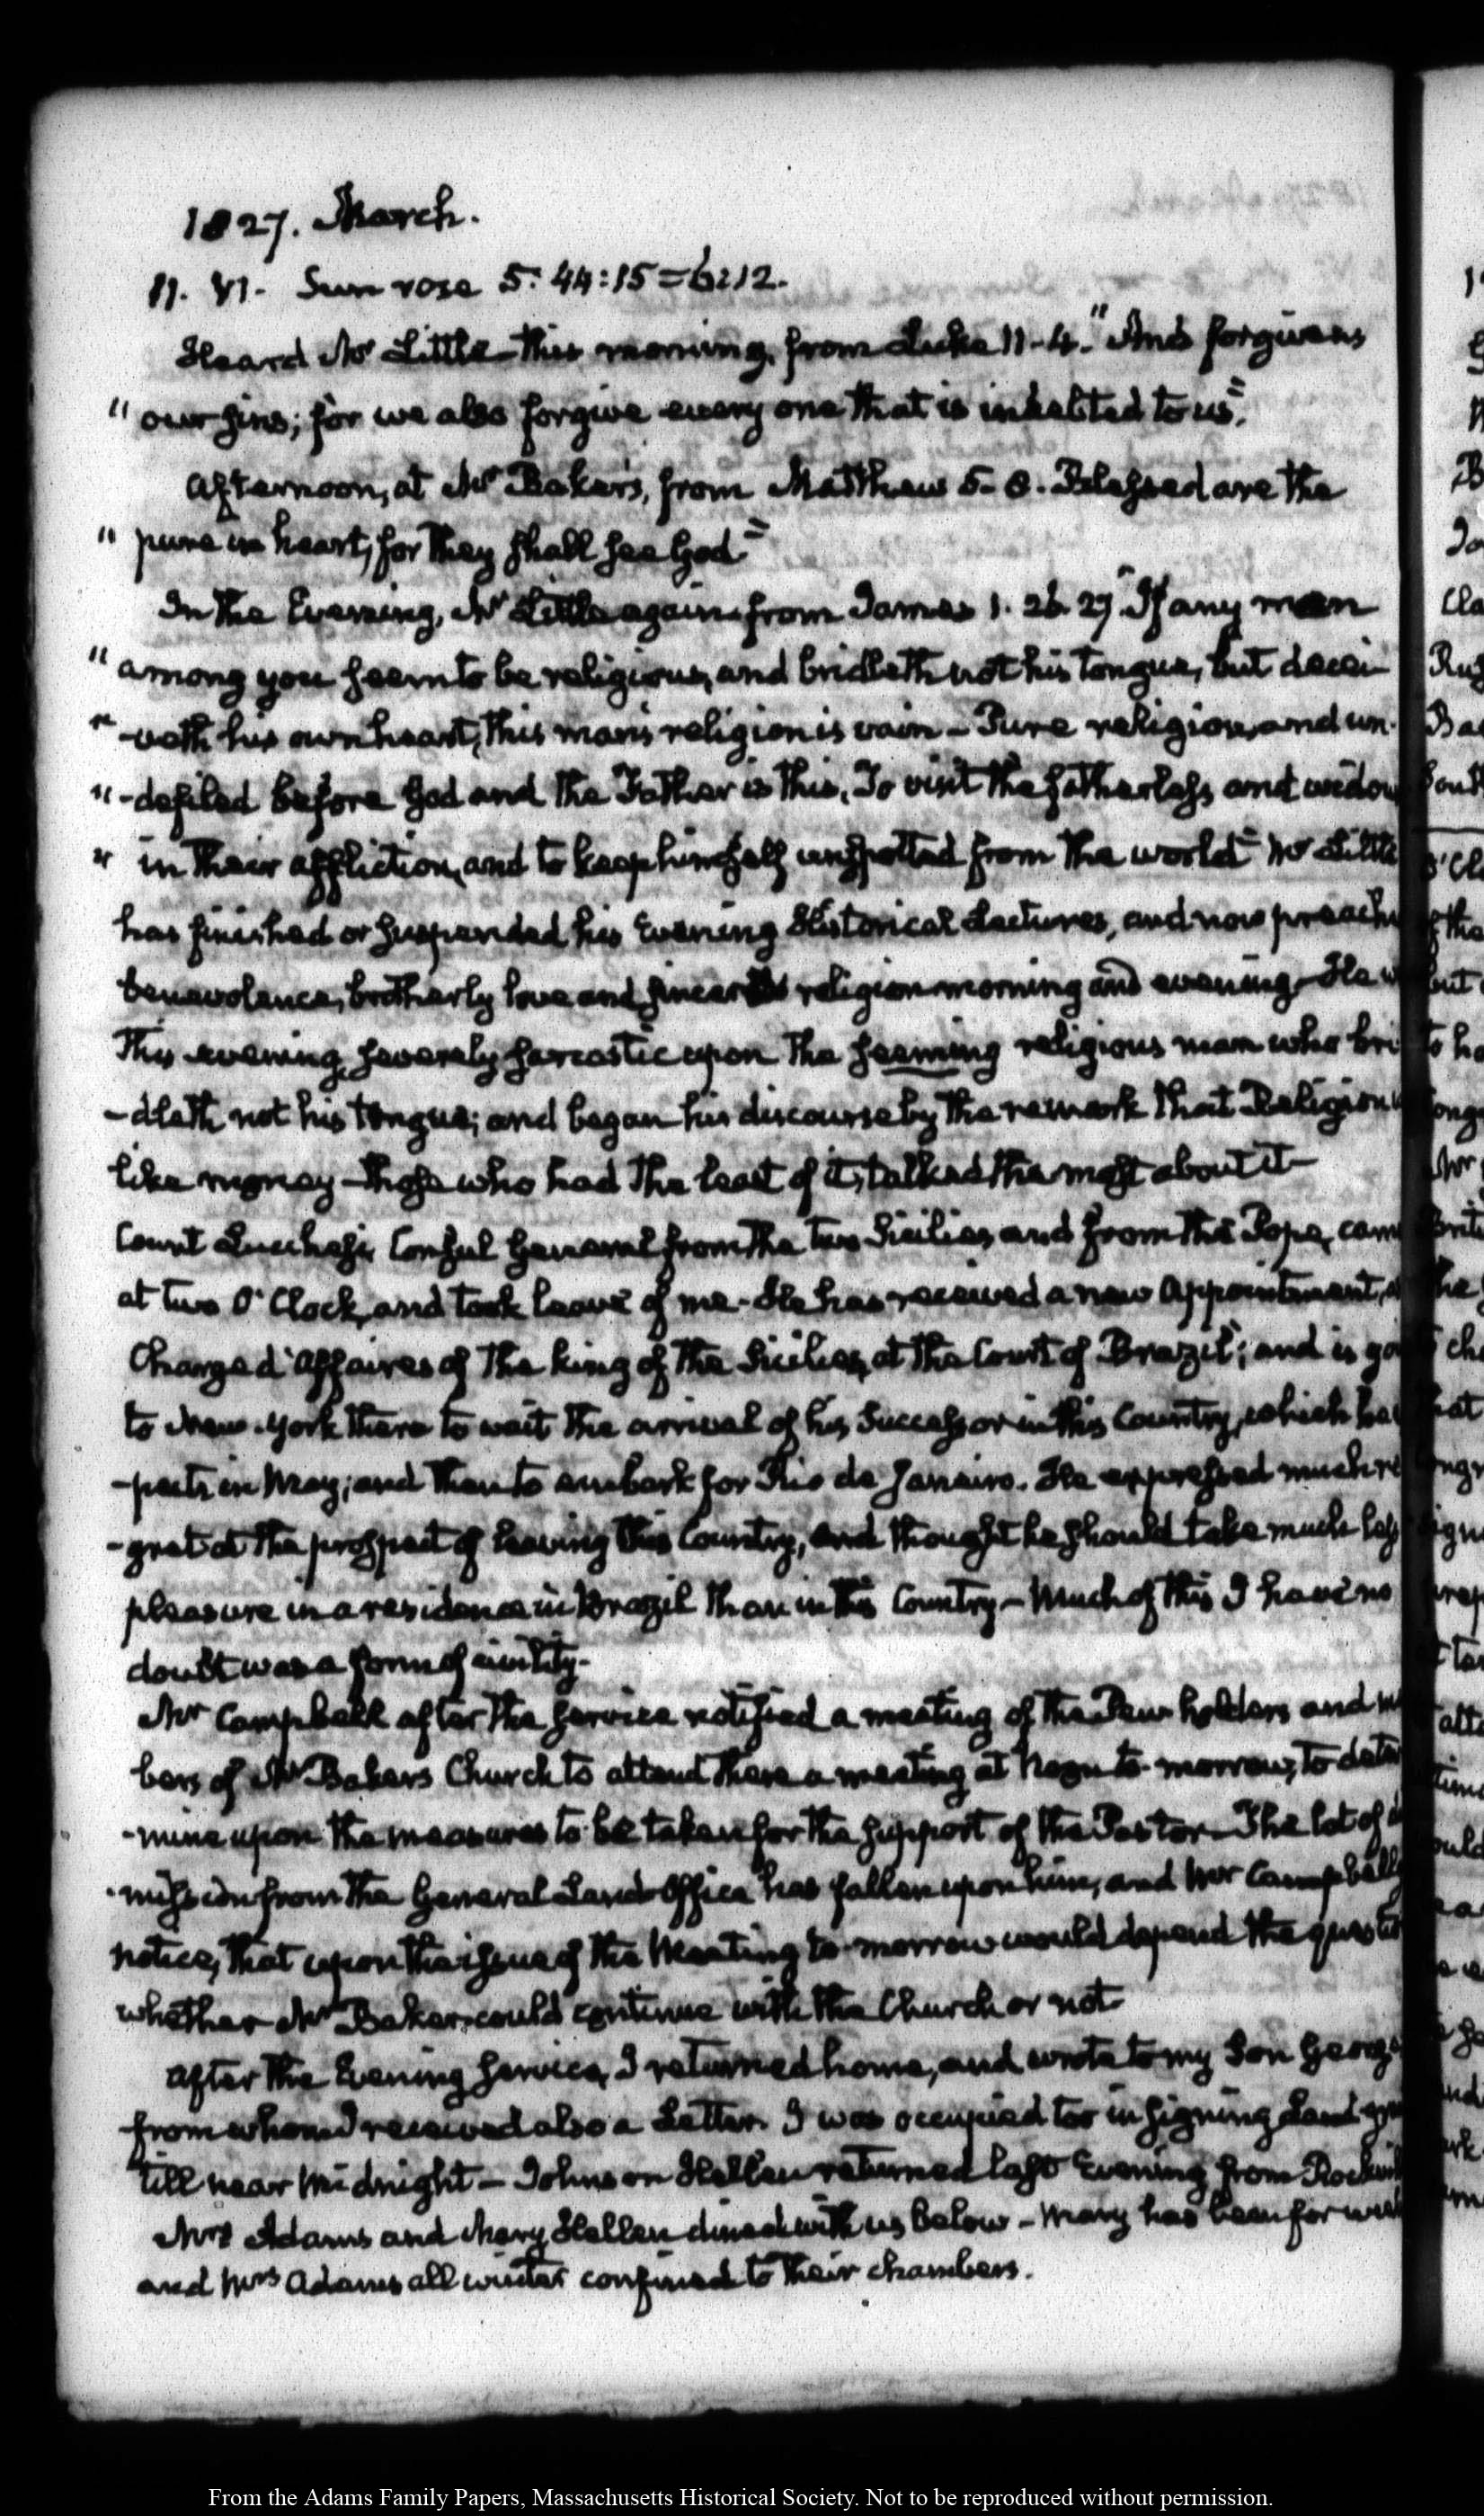 1827. March.
11. VI. Sun rose 5:44:15=6:12.
Heard Mr Little this morning, from Luke 11-4. "And forgive us
"our sins; for we also forgive every one that is indebted to us".
Afternoon, at Mr Baker's, from Matthew 5-8. Blessed are the
"pure in heart, for they shall see God"
In the Evening, Mr Little again from James 1. 26 27. "If any man
"among you seem to be religious, and bridleth not his tongue, but decei-
"-veth his own heart, this man's religion is vain - Pure religion, and un-
"-defiled before God and the Father is this, To visit the fatherless and widow
"in their affliction, and to keep himself unspotted from the world" Mr Little
has finished or suspended his Evening Historical Lectures, and now preach
benevolence, brotherly love and religion morning and evening. He w
this evening severely sarcastic upon the seeming religious man who bri
-dleth not his tongue; and began his discourse by the remark that Religion
like money - those who had the least of it, talked the most about it-
Count Lucchesi, Consul General from the two Sicilies, and from the Pope, cam
at two O'Clock, and took leave of me. He has received a new Appointment, a
Charge d'affaires of the King of the Sicilies, at the Court of Brazil; and is go
to New-York there to wait the arrival of his Successor in this Country, which he
-pects in May; and then to embark for Rio de Janeiro. He expressed much re
-gret at the prospect of leaving this Country, and thought he should take much less
pleasure in a residence in Brazil than in this Country - Much of this I have no
doubt was a form of civility-
Mr Campbell after the service notified a meeting of the Pew-holders and m
bers of Mr Bakers Church to attend there a meeting at Noon to-morrow, to deter
-mine upon the measures to be taken for the support of the Pastor - The lot of
-mission from the General Land Office has fallen upon him, and Mr Campbell
notice, that upon the issue of the Meeting to-morrow would depend the questi
whether Mr Baker could continue with the Church or not.
After the Evening service, I returned home, and wrote to my Son George
from whom I received also a Letter. I was occupied too in signing Land gra
till near Midnight - Johnson Hellen returned last Evening from Rockvil
Mrs Adams and Mary Hellen dined with us below - Mary has been for we
and Mrs Adams all winter confined to their chambers.
From the Adams Family Papers, Massachusetts Historical Society. Not to be reproduced without permission.